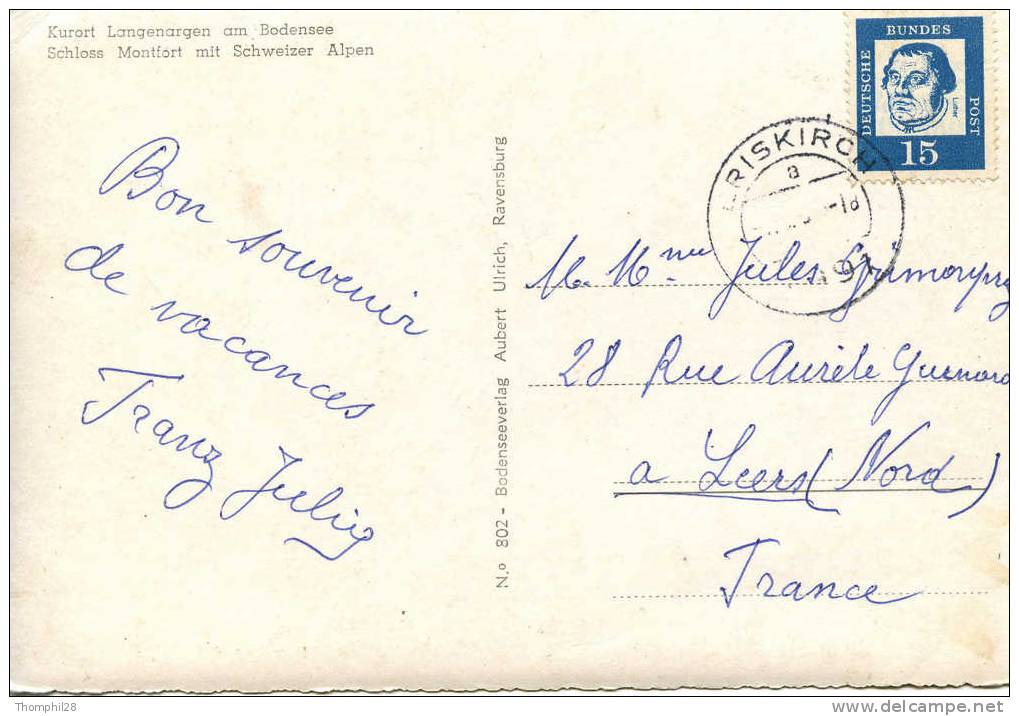 Kurort Langenargen am Bodensee
Schloss Montfort mit Schweizer Alpen
Bon souvenir
de vacances
Franz
N.o 802 - Bodenseeverlag Aubert Ulrich, Ravensburg
DEUTSCHE
BUNDES
POST
Luther
15
ERISKIRCH
a
-18
M. Mme Jules
28 Rue Aurèle Guénard
a Leers (Nord)
France
Thomphil28
www.delcampe.net